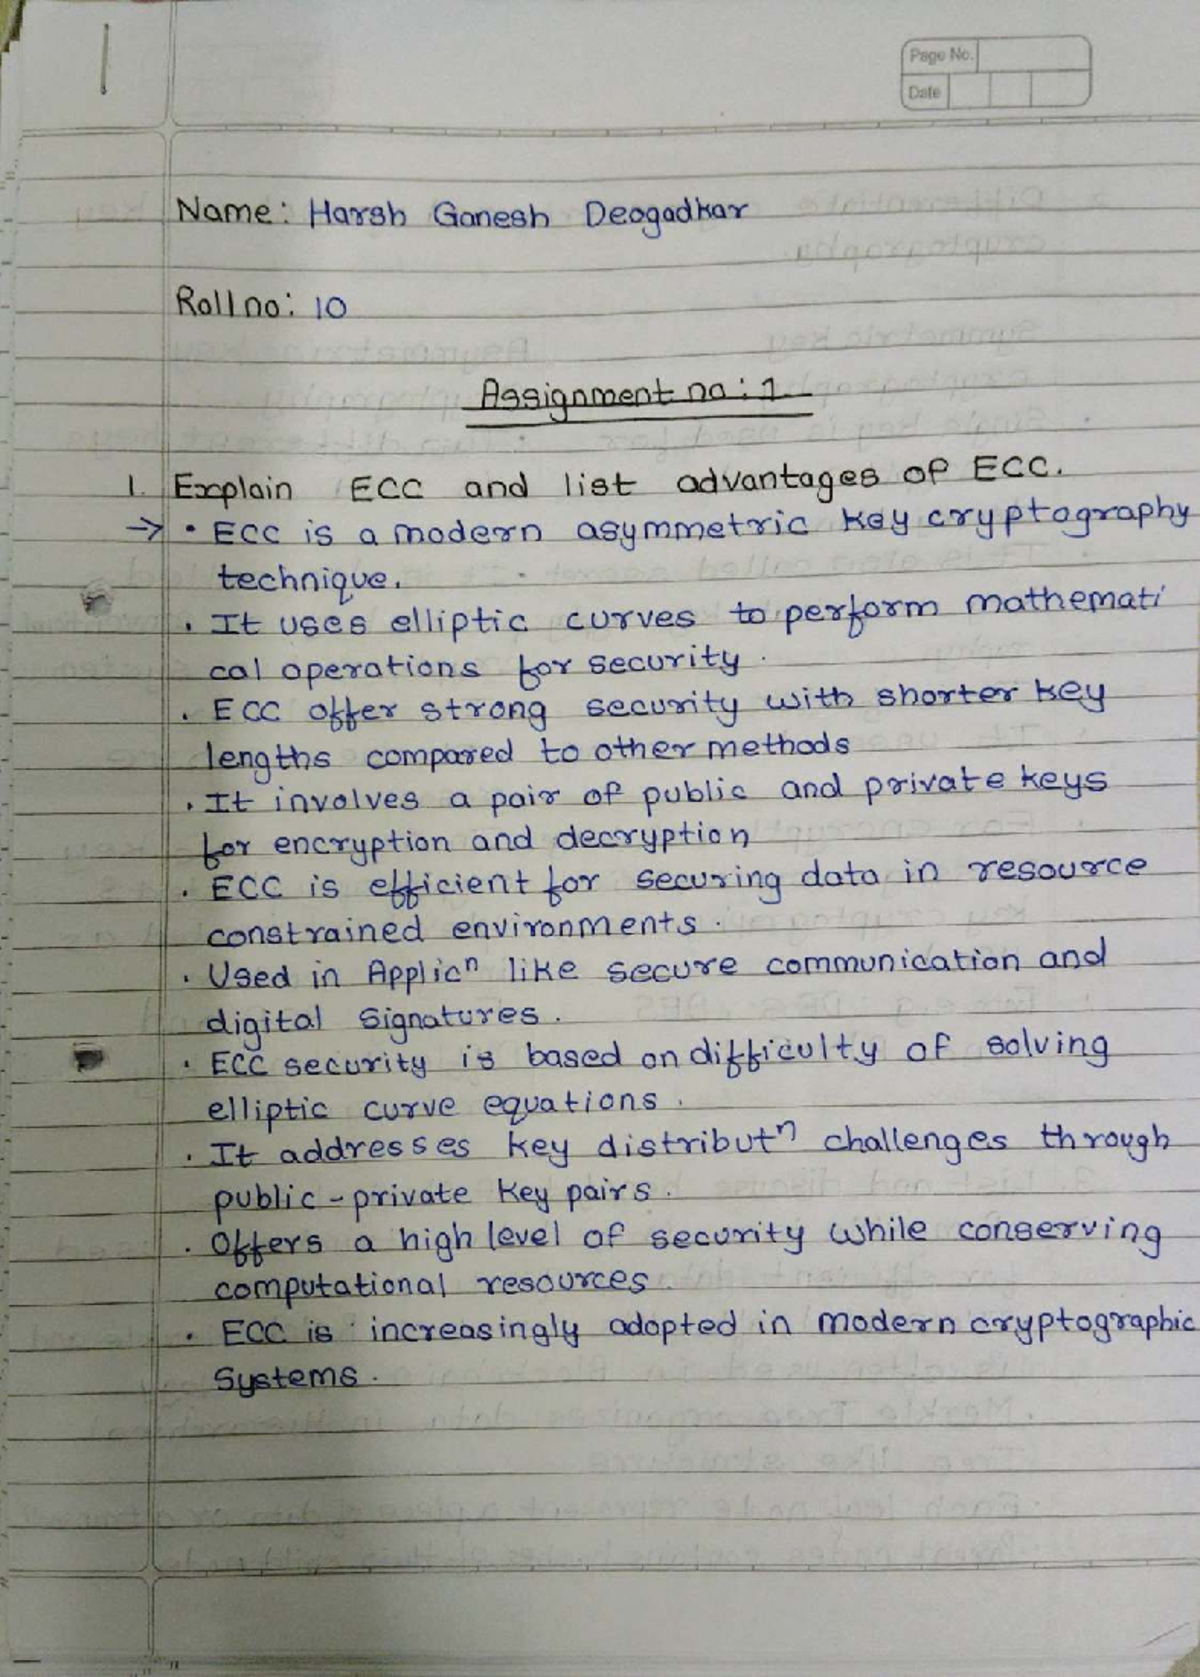 1
Page No.
Date
Name: Harsh Ganesh Deogadkar
Roll no: 10
Assignment no: 1
1. Explain ECC and list advantages of ECC.
→ • ECC is a modern asymmetric key cryptography
technique.
• It uses elliptic curves to perform mathemati
cal operations for security.
• ECC offer strong security with shorter key
lengths compared to other methods
• It involves a pair of public and private keys
for encryption and decryption
• ECC is efficient for securing data in resource
constrained environments.
• Used in Applicⁿ like secure communication and
digital signatures.
• ECC security is based on difficulty of solving
elliptic curve equations.
• It addresses key distributⁿ challenges through
public-private key pairs.
• Offers a high level of security while conserving
computational resources
• ECC is increasingly adopted in modern cryptographic
systems.